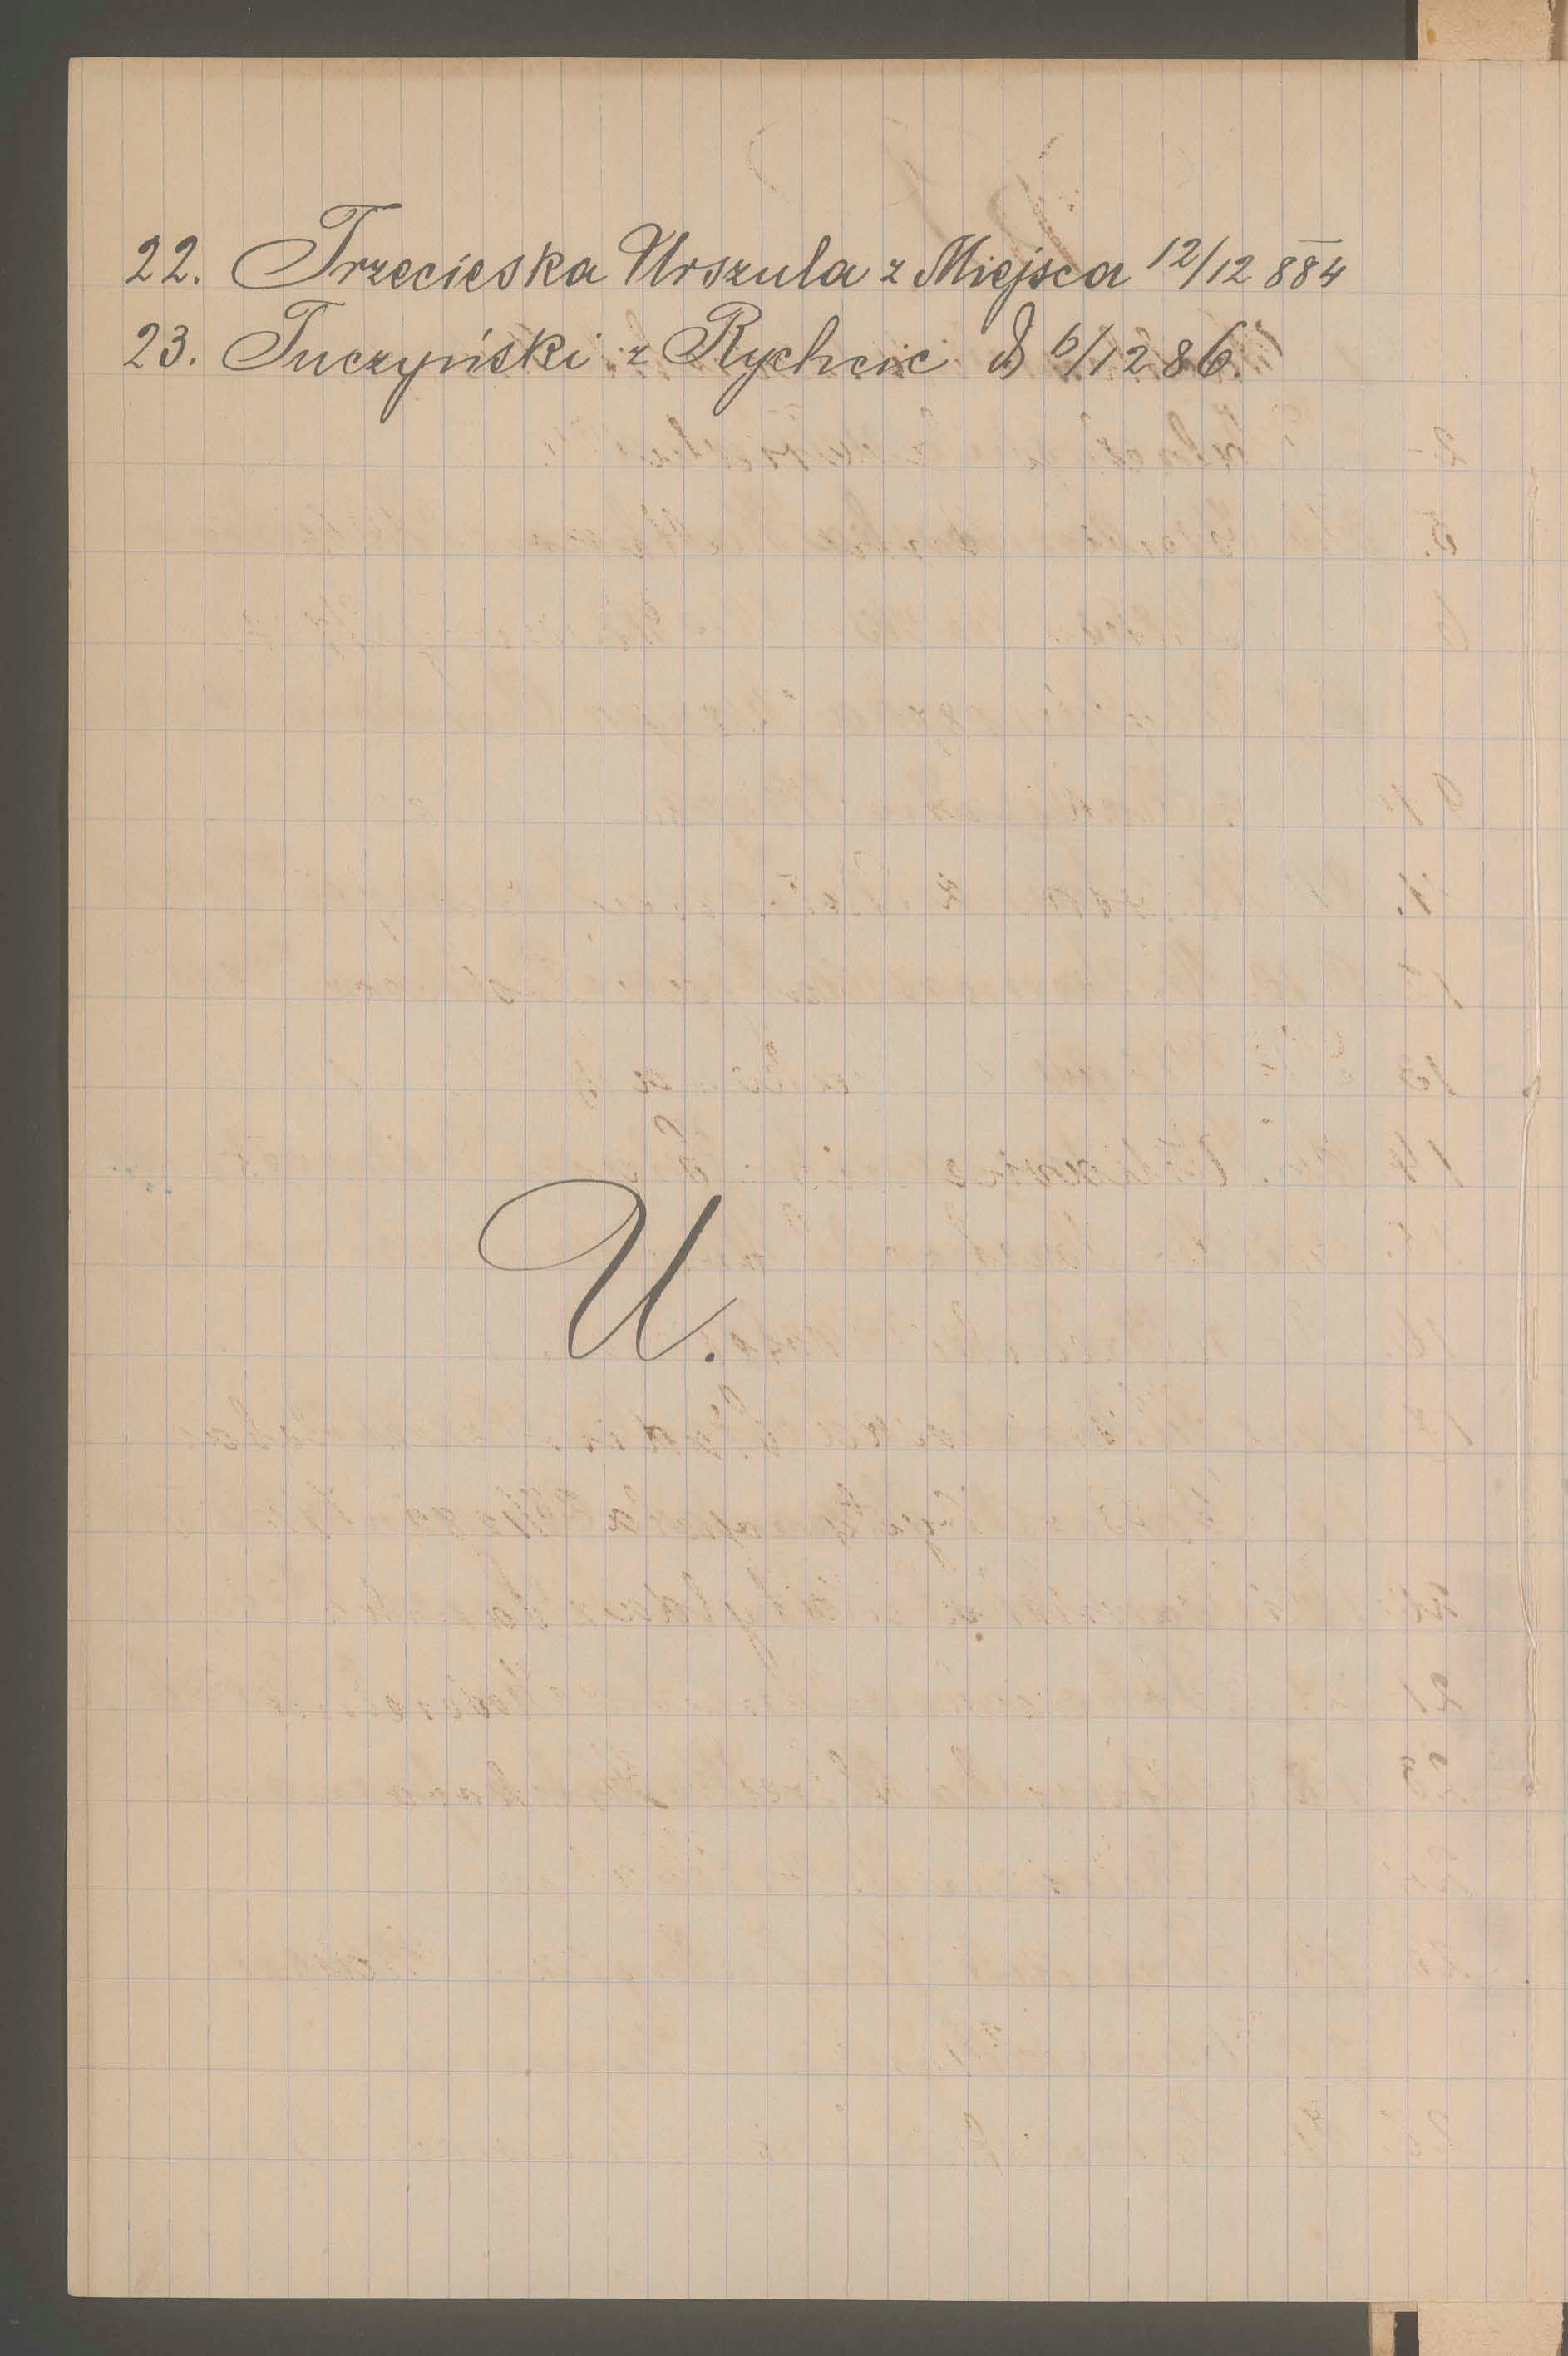 22. Trzecieska Urszula z Miejsca 12/12 884
23. Tuczyński z Rychcic d 6/12 86.
U.